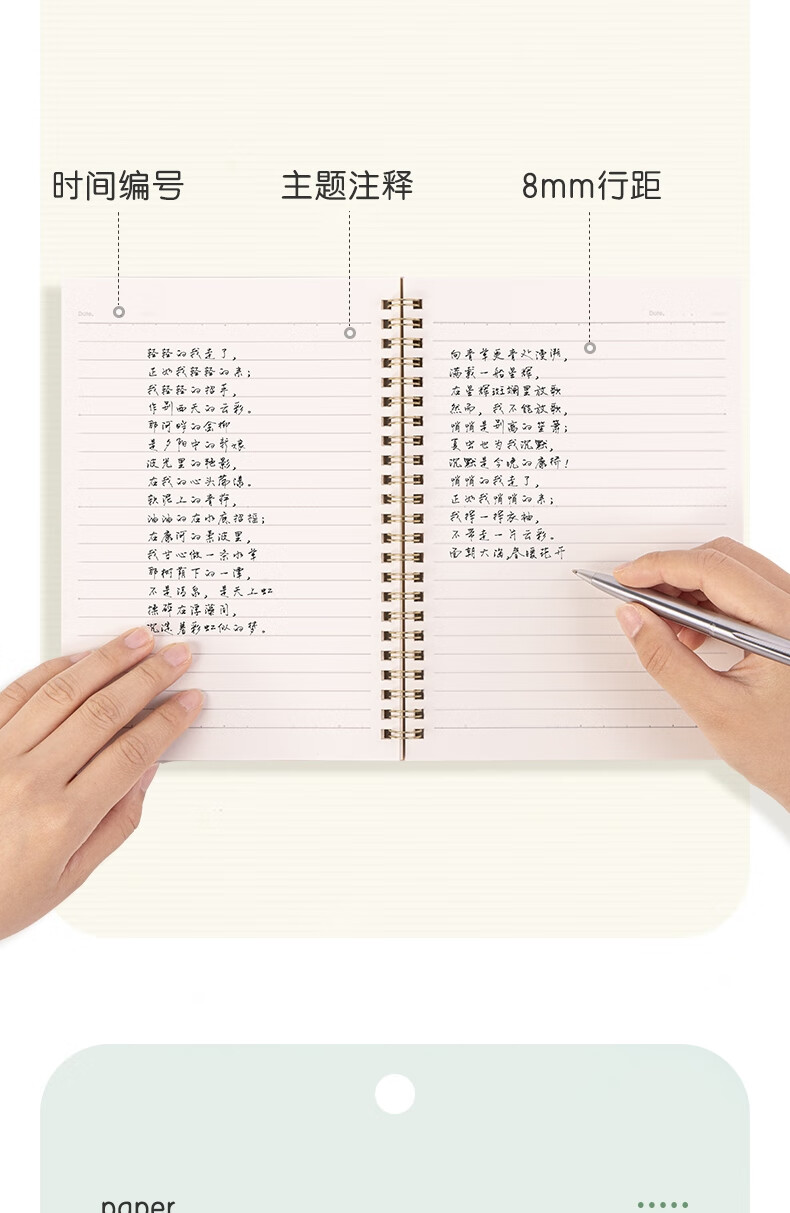 时间编号
主题注释
8mm行距
Date.
Date.
轻轻的我走了,
正如我轻轻的来;
我轻轻的招手,
作别西天的云彩。
那河畔的金柳
是夕阳中的新娘
波光里的艳影,
在我的心头荡漾。
软泥上的青荇,
油油的在水底招摇;
在康河的柔波里,
我甘心做一条水草
那树荫下的一潭,
不是清泉, 是天上虹
揉碎在浮藻间,
沉淀着彩虹似的梦。
向青草更青处漫溯,
满载一船星辉,
在星辉斑斓里放歌
然而, 我不能放歌,
悄悄是别离的笙箫;
夏虫也为我沉默,
沉默是今晚的康桥!
悄悄的我走了,
正如我悄悄的来;
我挥一挥衣袖,
不带走一片云彩。
面朝大海,春暖花开
paper